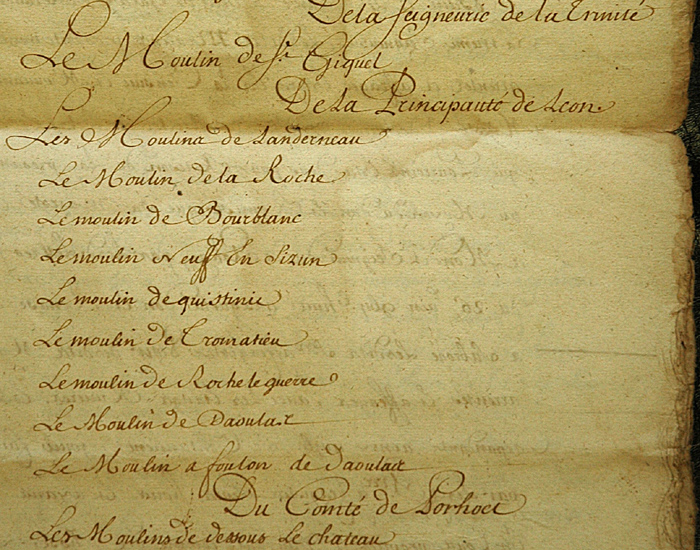 De la seigneurie de la Trinité
Le Moulin de St Giquel
De La Principauté de Leon.
Les Moulins de Landerneau
Le Moulin de la Roche
Le moulin de Bourblanc
Le moulin neuff En Sizun
Le moulin de quistinie
Le moulin de Tromatieu
Le moulin de Roche le guerre
Le Moulin de Daoulax
Le Moulin a foulon de daoulax
Du Comté de Porhoet
Les Moulins de dessous Le chateau